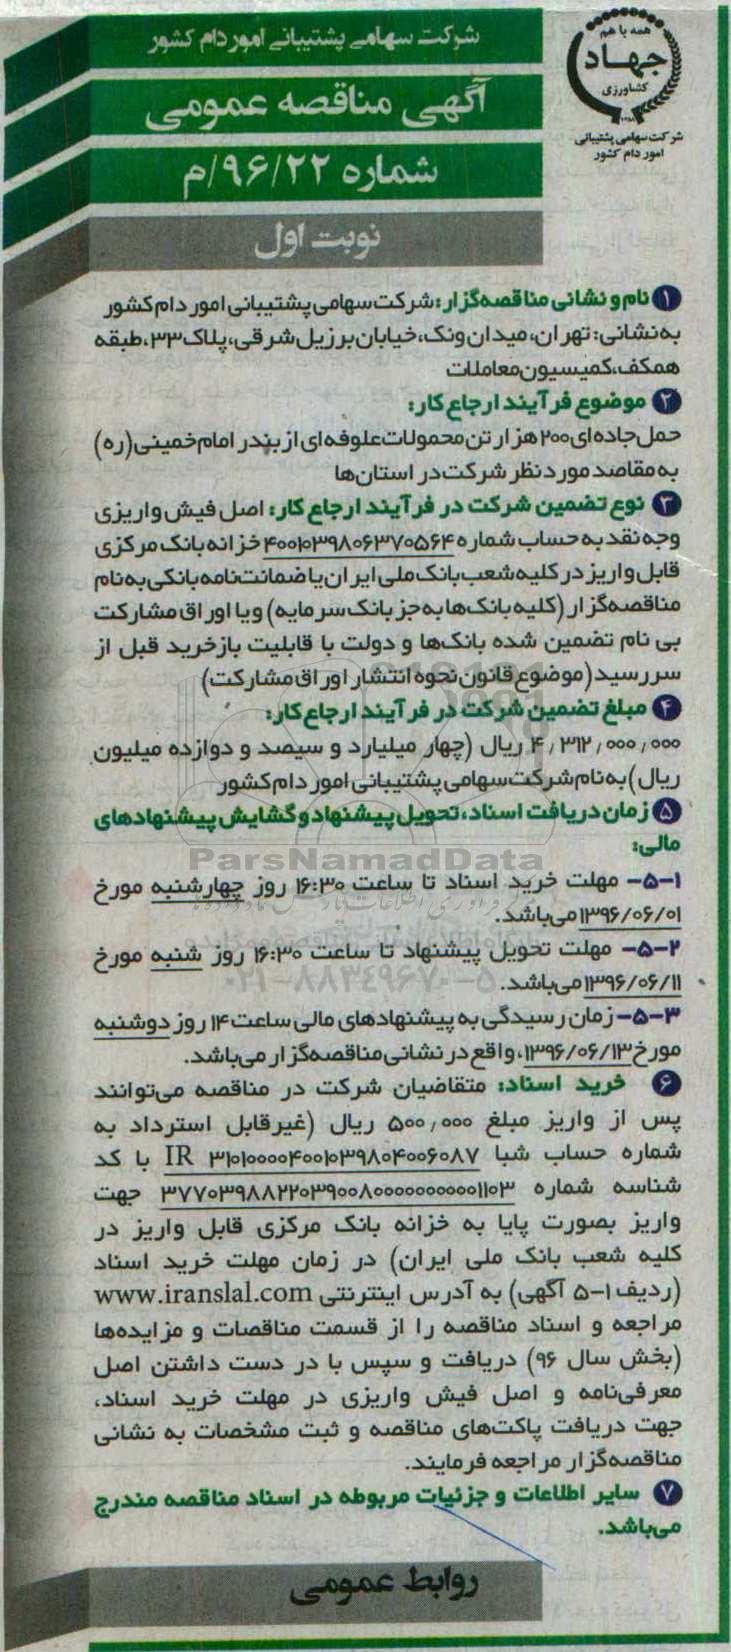 همه با هم
جهاد
کشاورزی
شرکت سهامی پشتیبانی
امور دام کشور
شرکت سهامی پشتیبانی امور دام کشور
آگهی مناقصه عمومی
شماره ۹۶/۲۲/م
نوبت اول
۱ نام و نشانی مناقصه‌گزار: شرکت سهامی پشتیبانی امور دام کشور
به نشانی: تهران، میدان ونک، خیابان برزیل شرقی، پلاک ۳۳، طبقه
همکف، کمیسیون معاملات
۲ موضوع فرآیند ارجاع کار:
حمل جاده‌ای ۲۰۰ هزار تن محصولات علوفه‌ای از بندر امام خمینی (ره)
به مقاصد مورد نظر شرکت در استان‌ها
۳ نوع تضمین شرکت در فرآیند ارجاع کار: اصل فیش واریزی
وجه نقد به حساب شماره ۴۰۰۱۰۳۹۸۰۶۳۷۰۵۶۴ خزانه بانک مرکزی
قابل واریز در کلیه شعب بانک ملی ایران یا ضمانت‌نامه بانکی به نام
مناقصه‌گزار (کلیه بانک‌ها به جز بانک سرمایه) و یا اوراق مشارکت
بی نام تضمین شده بانک‌ها و دولت با قابلیت بازخرید قبل از
سررسید (موضوع قانون نحوه انتشار اوراق مشارکت)
۴ مبلغ تضمین شرکت در فرآیند ارجاع کار:
۴٫۳۱۲٫۰۰۰٫۰۰۰ ریال (چهار میلیارد و سیصد و دوازده میلیون
ریال) به نام شرکت سهامی پشتیبانی امور دام کشور
۵ زمان دریافت اسناد، تحویل پیشنهاد و گشایش پیشنهادهای
مالی:
ParsNamadData
۵-۱- مهلت خرید اسناد تا ساعت ۱۶:۳۰ روز چهارشنبه مورخ
۱۳۹۶/۰۶/۰۱ می‌باشد.
۵-۲- مهلت تحویل پیشنهاد تا ساعت ۱۶:۳۰ روز شنبه مورخ
۰۲۱-۸۸۳۴۹۶۷۰-۵
۱۳۹۶/۰۶/۱۱ می‌باشد.
۵-۳- زمان رسیدگی به پیشنهادهای مالی ساعت ۱۴ روز دوشنبه
مورخ ۱۳۹۶/۰۶/۱۳، واقع در نشانی مناقصه‌گزار می‌باشد.
۶ خرید اسناد: متقاضیان شرکت در مناقصه می‌توانند
پس از واریز مبلغ ۵۰۰٫۰۰۰ ریال (غیرقابل استرداد به
شماره حساب شبا IR ۳۱۰۱۰۰۰۰۴۰۰۱۰۳۹۸۰۴۰۰۶۰۸۷ با کد
شناسه شماره ۳۷۷۰۳۹۸۸۲۲۰۳۹۰۰۸۰۰۰۰۰۰۰۰۰۰۱۱۰۳ جهت
واریز بصورت پایا به خزانه بانک مرکزی قابل واریز در
کلیه شعب بانک ملی ایران) در زمان مهلت خرید اسناد
(ردیف ۱-۵ آگهی) به آدرس اینترنتی www.iranslal.com
مراجعه و اسناد مناقصه را از قسمت مناقصات و مزایده‌ها
(بخش سال ۹۶) دریافت و سپس با در دست داشتن اصل
معرفی‌نامه و اصل فیش واریزی در مهلت خرید اسناد،
جهت دریافت پاکت‌های مناقصه و ثبت مشخصات به نشانی
مناقصه‌گزار مراجعه فرمایند.
۷ سایر اطلاعات و جزئیات مربوطه در اسناد مناقصه مندرج
می‌باشد.
روابط عمومی